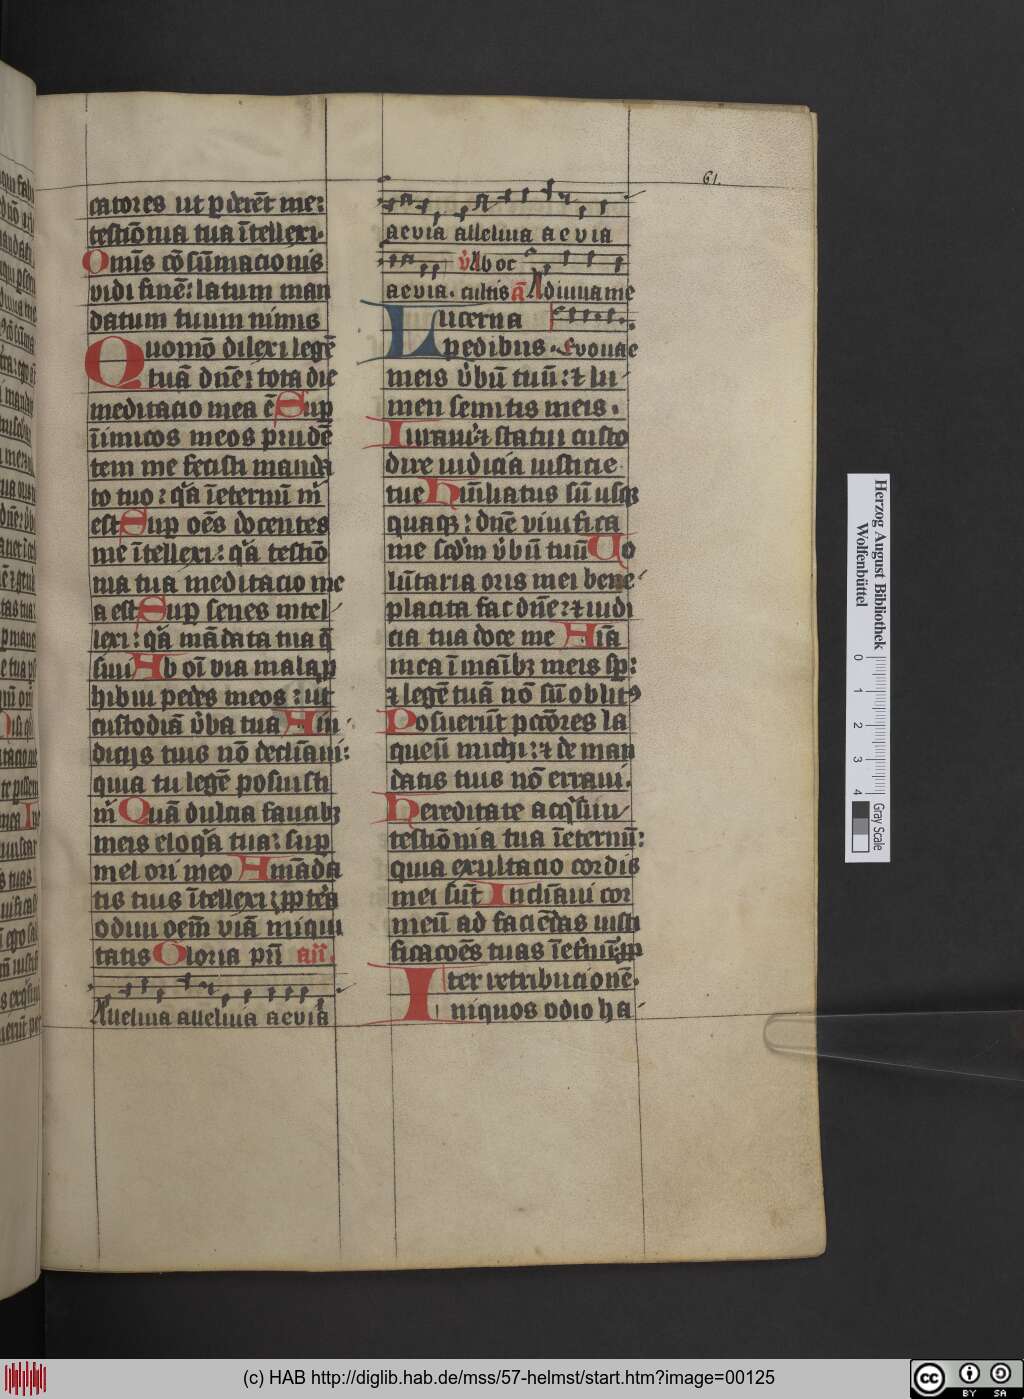 catores ut p̱derēt me:
testiōnia tua ītellexi.
Omīs cōsūmacionis
vidi finē: latum man
datum tuum nimis
Quomō dilexi legē
tuā dn̄e: tota die
meditacio mea ē Sup̱
īimicos meos prudē
tem me fecisti manda
to tuo: qͣa īeternū m̄
est Sup̱ oēs docentes
me ītellexi: qͣa testiō
nia tua meditacio me
a est Sup̱ senes intel
lexi: qͣa mādata tua q̄
siui Ab oī via mala p̱
hibui pedes meos: ut
custodiā v̄ba tua A iu
dicijs tuis nō decliāui:
quia tu legē posuisti
m̄ Quā dulcia faucibꝫ
meis eloqͣa tua: sup̱
mel ori meo A māda
tis tuis ītellexi: p̱pteͣa
odiui oem̄ viā iniqui
tatis Gloria pr̄i añ.
Alleluia alleluia aevia
aevia alleluia aevia
aevia. V̄ Ab oc
cultis ā Adiuua me
Lucerna
pedibus. Evouae
meis v̄bū tuū: ⁊ lu
men semitis meis.
Iuraui ⁊ statui custo
dire iudicia iusticie
tue Hūiliatus sū usqꝫ
quaqꝫ: dn̄e viuifica
me scd̄m v̄bū tuū Uo
lūtaria oris mei bene
placita fac dn̄e: ⁊ iudi
cia tua doce me Aīa
mea ī maībꝫ meis sp̱:
⁊ legē tuā nō sū oblitꝰ
Posuerūt pctōres la
queū michi: ⁊ de man
datis tuis nō erraui.
Hereditate acqͥsiui
testiōnia tua īeternū:
quia exultacio cordis
mei sūt Incliāui cor
meū ad faciēdas iusti
ficacoēs tuas īet̄nū: p̱p
ter retribucionē.
Iniquos odio ha
61.
Herzog August Bibliothek
Wolfenbüttel
0 1 2 3 4
Gray Scale
(c) HAB http://diglib.hab.de/mss/57-helmst/start.htm?image=00125
cc BY SA